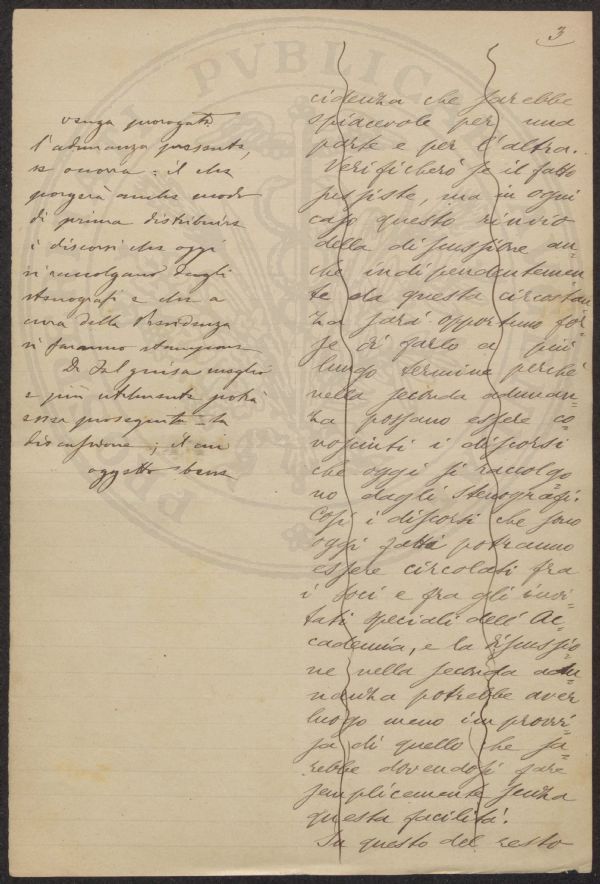 3
venga prorogata
l'adunanza presente,
se occorra: il che
porgerà anche modo
di prima distribuire
i discorsi che oggi
si raccolgano dagli
stenografi e che a
cura della Presidenza
si faranno stampare
Di tal guisa meglio
e più utilmente potrà
essere proseguita la
discussione; il cui
oggetto bene
cidenza che sarebbe
spiacevole per una
parte e per l'altra.
Verificherò se il fatto
sussiste, ma in ogni
caso questo rinvio
della discussione an=
che indipendentemen=
te da questa circostan
za sarà opportuno for=
se di farlo a più
lungo termine perché
nella seconda adunan=
za possano essere co=
nosciuti i discorsi
che oggi si raccolgo=
no dagli stenografi.
Così i discorsi che sono
oggi fatti potranno
essere circolati fra
i soci e fra gli invi=
tati speciali dell'Ac=
cademia, e la discussio=
ne nella seconda adu=
nanza potrebbe aver
luogo meno improvvi=
sa di quello che sa=
rebbe dovendosi fare
semplicemente senza
questa facilità.
Su questo del resto
PVBLICA